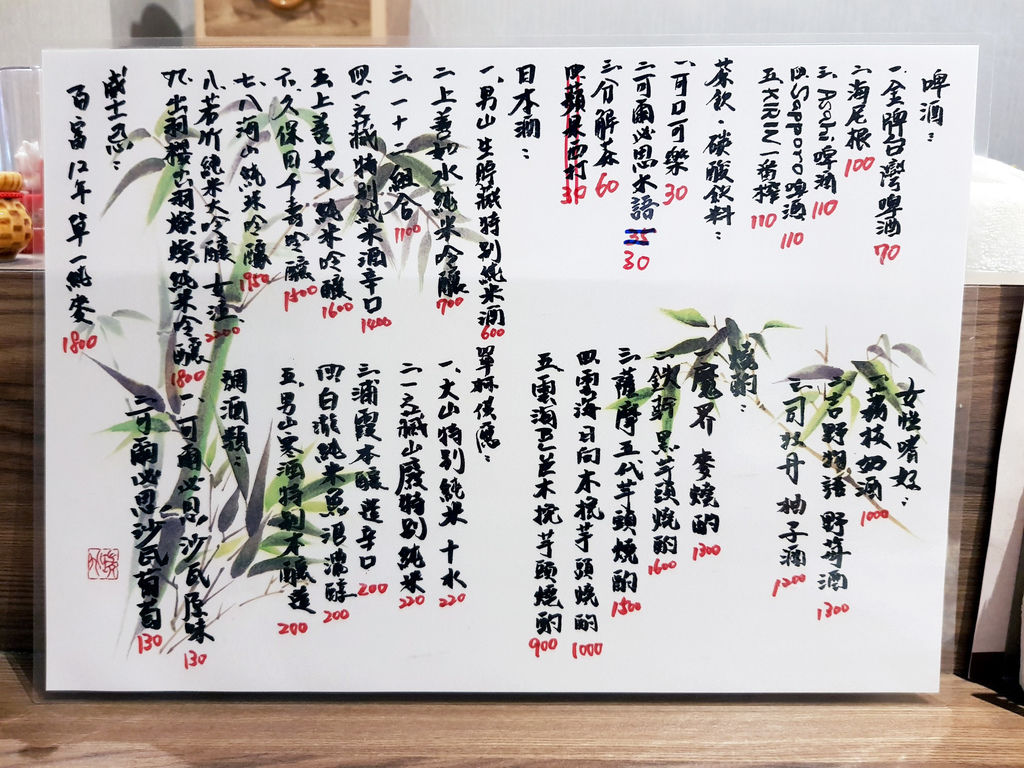 啤酒：
一、金牌台灣啤酒 70
二、海尼根 100
三、Asahi啤酒 110
四、Sapporo啤酒 110
五、KIRIN一番搾 110
茶飲、碳酸飲料：
一、可口可樂 30
二、可爾必思木語 35 30
三、分解茶 60
四、蘋果西打 30
日本酒：
一、男山生貯藏特別純米酒 600
二、上善如水純米吟釀 700
三、一十二組合 1100
四、一之藏特別純米酒辛口 1400
五、上善如水純米吟釀 1600
六、久保田千壽吟釀 1500
七、八海山純米吟釀 1950
八、若竹純米大吟釀 女泣 2200
九、出羽櫻出羽燦燦純米吟釀 1800
威士忌：
百富12年單一純麥 1800
女性嗜好：
一、荔枝奶酒 1000
二、吉野物語 野莓酒 1300
三、司牡丹 柚子酒 1200
燒酌：
一、魔界 麥燒酌 1300
二、鉄幹黑芋頭燒酌 1600
三、薩摩五代芋頭燒酌 1500
四、雲海日向木挽芋頭燒酌 1000
五、雲海巴並木挽芋頭燒酌 900
單杯供應：
一、大山特別純米 十水 220
二、一之藏山廢特別純米 220
三、浦霞本釀造辛口 200
四、白瀧純米魚沼濃醇 200
五、男山寒酒特別本釀造 200
調酒類：
一、可爾必思沙瓦原味 130
二、可爾必思沙瓦葡萄 130